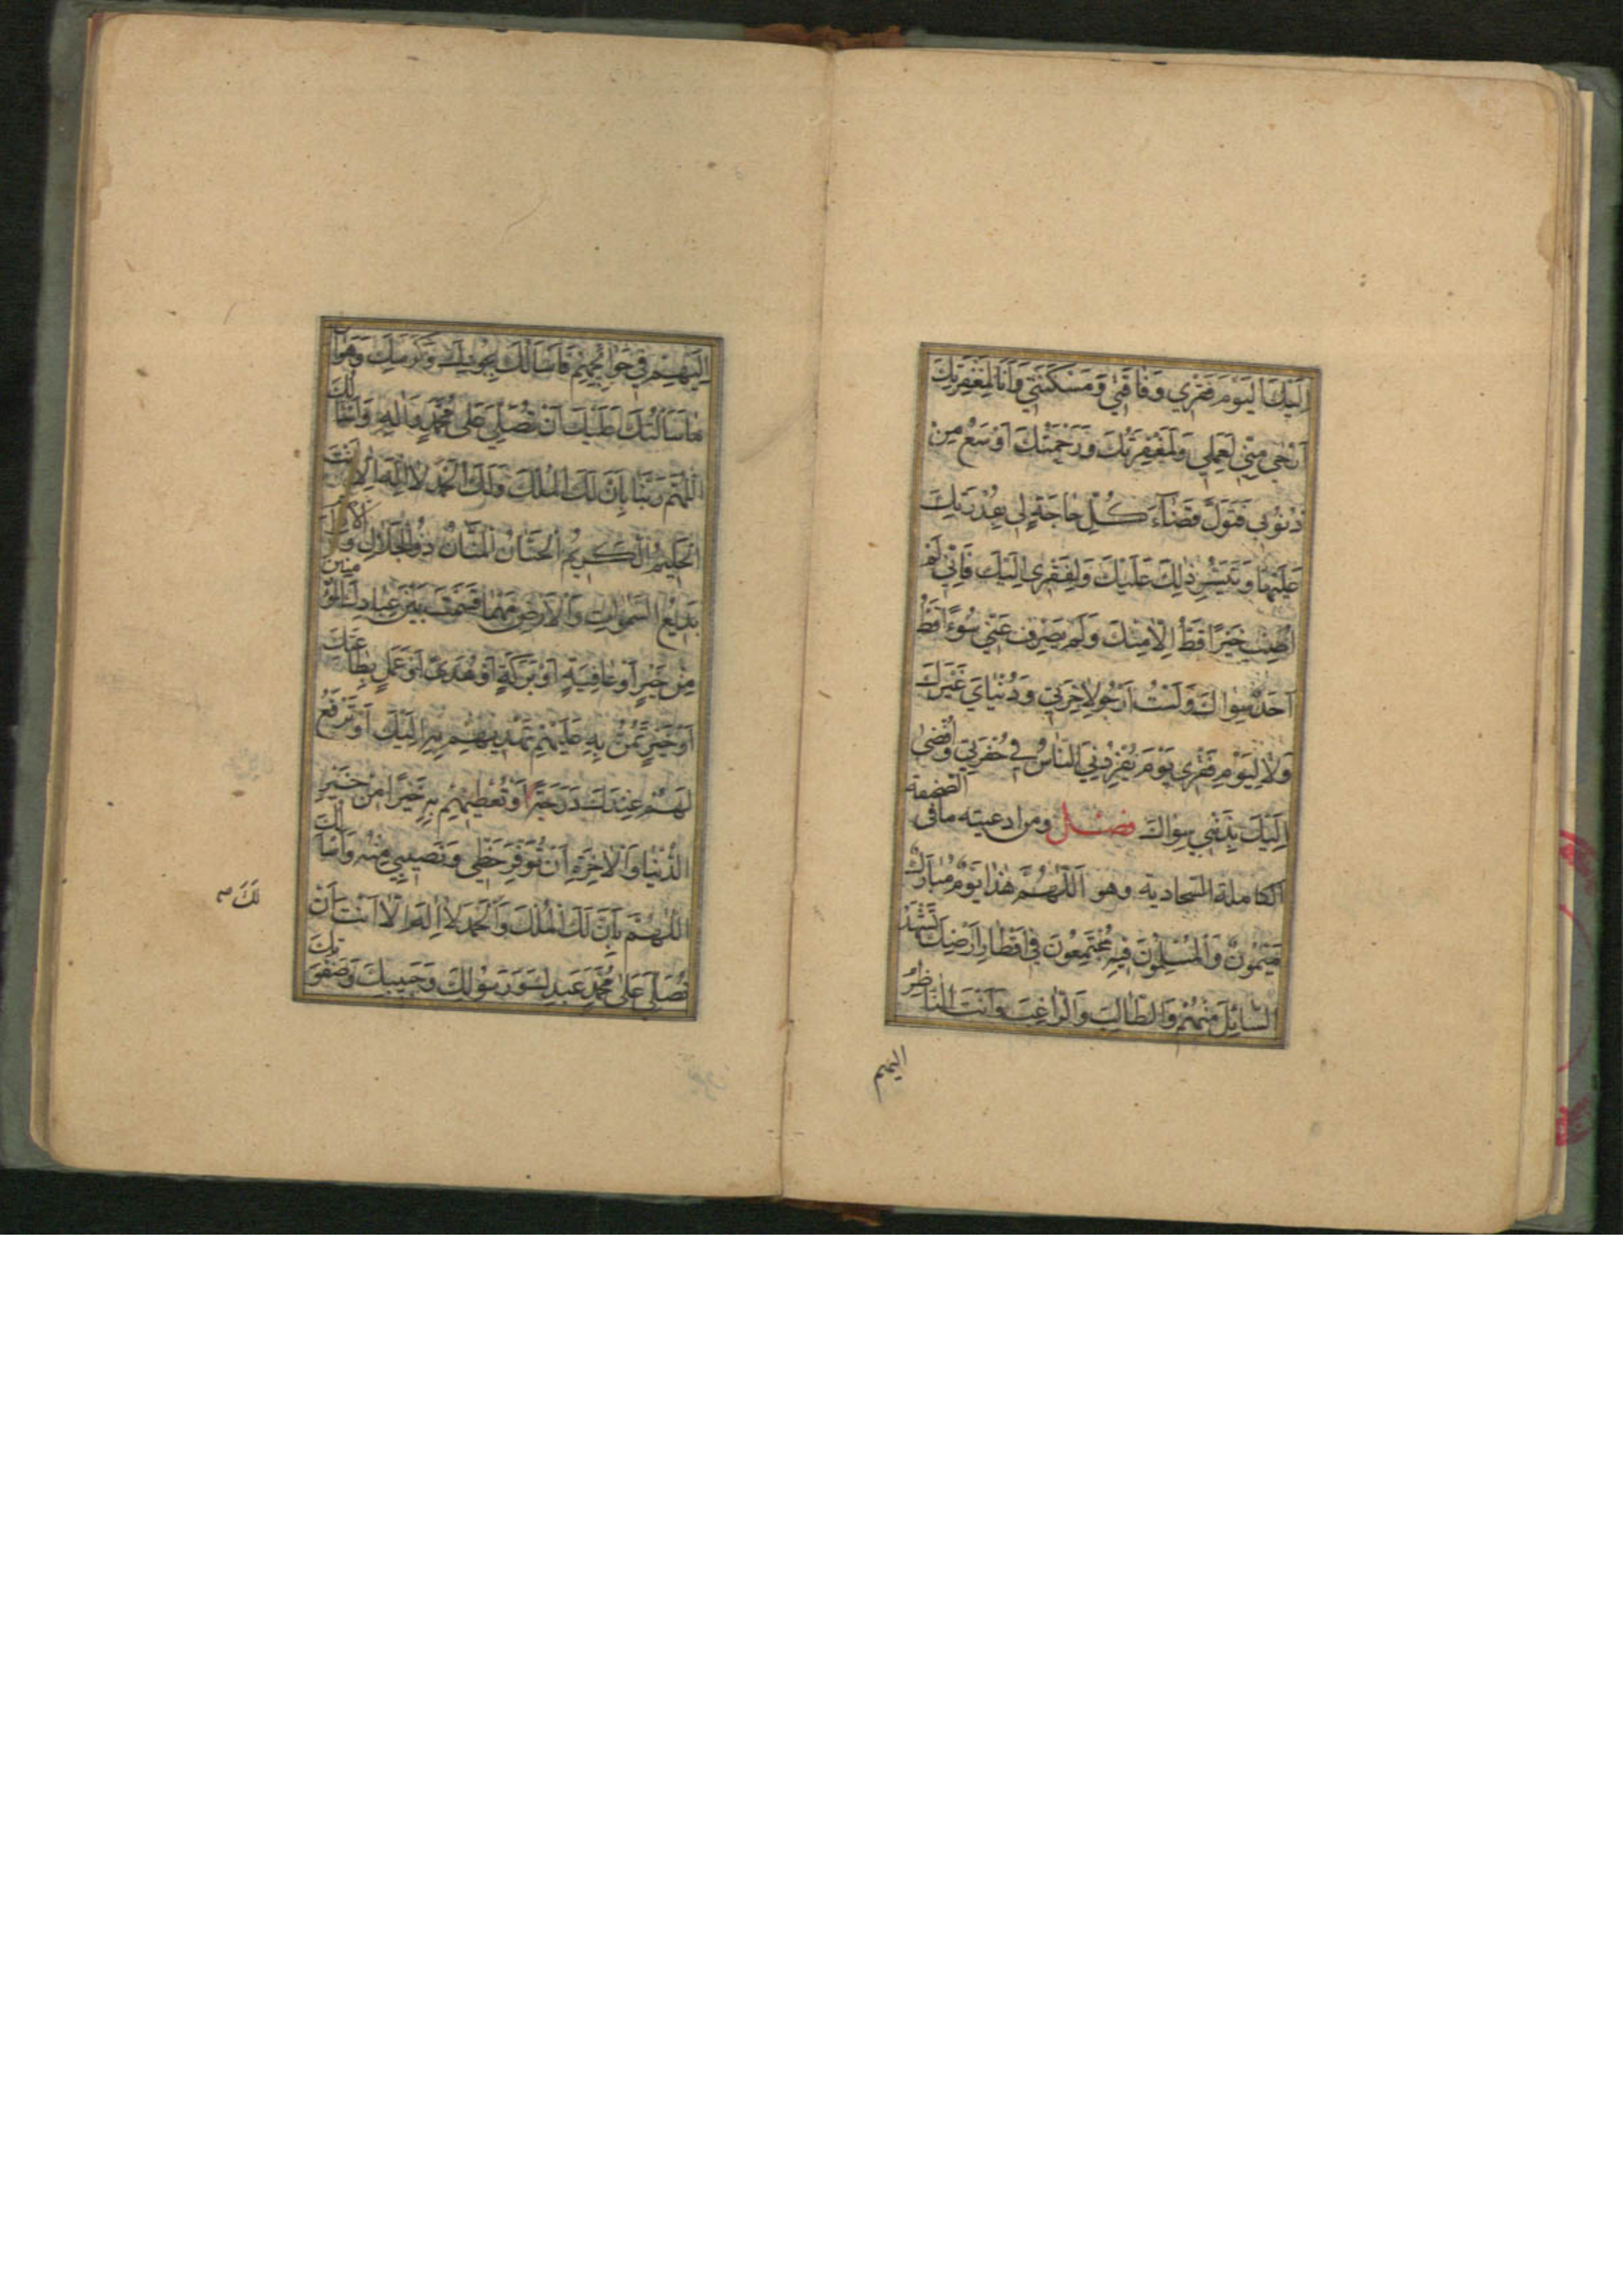 اِلَيْكَ اَلْيَوْمَ فَقْرِي وَفَاقَتِي وَمَسْكَنَتِي وَاَنَا لِمَغْفِرَتِكَ
اَرْجٰى مِنِّي لِعَمَلِي وَلَمَغْفِرَتُكَ وَرَحْمَتُكَ اَوْسَعُ مِنْ
ذُنُوبِي فَتَوَلَّ قَضَآءَ كُلِّ حَاجَةٍ لِي بِقُدْرَتِكَ
عَلَيْهَا وَتَيْسِيرِ ذٰلِكَ عَلَيْكَ وَلِفَقْرِي اِلَيْكَ فَاِنِّي لَمْ
اُصِبْ خَيْرًا قَطُّ اِلَّا مِنْكَ وَلَمْ يَصْرِفْ عَنِّي سُوءًا قَطُّ
اَحَدٌ سِوَاكَ وَلَسْتُ اَرْجُو لِاٰخِرَتِي وَدُنْيَايَ غَيْرَكَ
وَلَا لِيَوْمِ فَقْرِي يَوْمَ يُفْرِدُنِي النَّاسُ فِي حُفْرَتِي وَاُفْضِي
اِلَيْكَ بِذَنْبِي سِوَاكَ فصل ومن ادعيته ما فى الصحيفة
الكاملة السجادية وهو اَللّٰهُمَّ هٰذَا يَوْمٌ مُبَارَكٌ
مَيْمُونٌ وَالْمُسْلِمُونَ فِيهِ مُجْتَمِعُونَ فِي اَقْطَارِ اَرْضِكَ تَشْهَدُ
السَّائِلَ مِنْهُمْ وَالطَّالِبَ وَالرَّاغِبَ وَاَنْتَ النَّاظِرُ
اليهم
اِلَيْهِمْ فِي حَوَائِجِهِمْ فَاَسْاَلُكَ بِجُودِكَ وَكَرَمِكَ وَهَوَانِ
مَا سَاَلْتُكَ عَلَيْكَ اَنْ تُصَلِّيَ عَلٰى مُحَمَّدٍ وَاٰلِهِ وَاَسْاَلُكَ
اللّٰهُمَّ رَبَّنَا بِاَنَّ لَكَ الْمُلْكَ وَلَكَ الْحَمْدُ لَا اِلٰهَ اِلَّا اَنْتَ
الْحَلِيمُ الْكَرِيمُ الْحَنَّانُ الْمَنَّانُ ذُو الْجَلَالِ وَالْاِكْرَامِ
بَدِيعُ السَّمٰوَاتِ وَالْاَرْضِ مَهْمَا قَسَمْتَ بَيْنَ عِبَادِكَ الْمُؤْمِنِينَ
مِنْ خَيْرٍ اَوْ عَافِيَةٍ اَوْ بَرَكَةٍ اَوْ هُدًى اَوْ عَمَلٍ بِطَاعَتِكَ
اَوْ خَيْرٍ تَمُنُّ بِهِ عَلَيْهِمْ تَهْدِيهِمْ بِهِ اِلَيْكَ اَوْ تَرْفَعُ
لَهُمْ عِنْدَكَ دَرَجَةً اَوْ تُعْطِيهِمْ بِهِ خَيْرًا مِنْ خَيْرِ
الدُّنْيَا وَالْاٰخِرَةِ اَنْ تُوَفِّرَ حَظِّي وَنَصِيبِي مِنْهُ وَاَسْاَلُكَ
اللّٰهُمَّ بِاَنَّ لَكَ الْمُلْكَ وَالْحَمْدَ لَا اِلٰهَ اِلَّا اَنْتَ اَنْ
تُصَلِّيَ عَلٰى مُحَمَّدٍ عَبْدِكَ وَرَسُولِكَ وَحَبِيبِكَ وَصَفْوَتِكَ